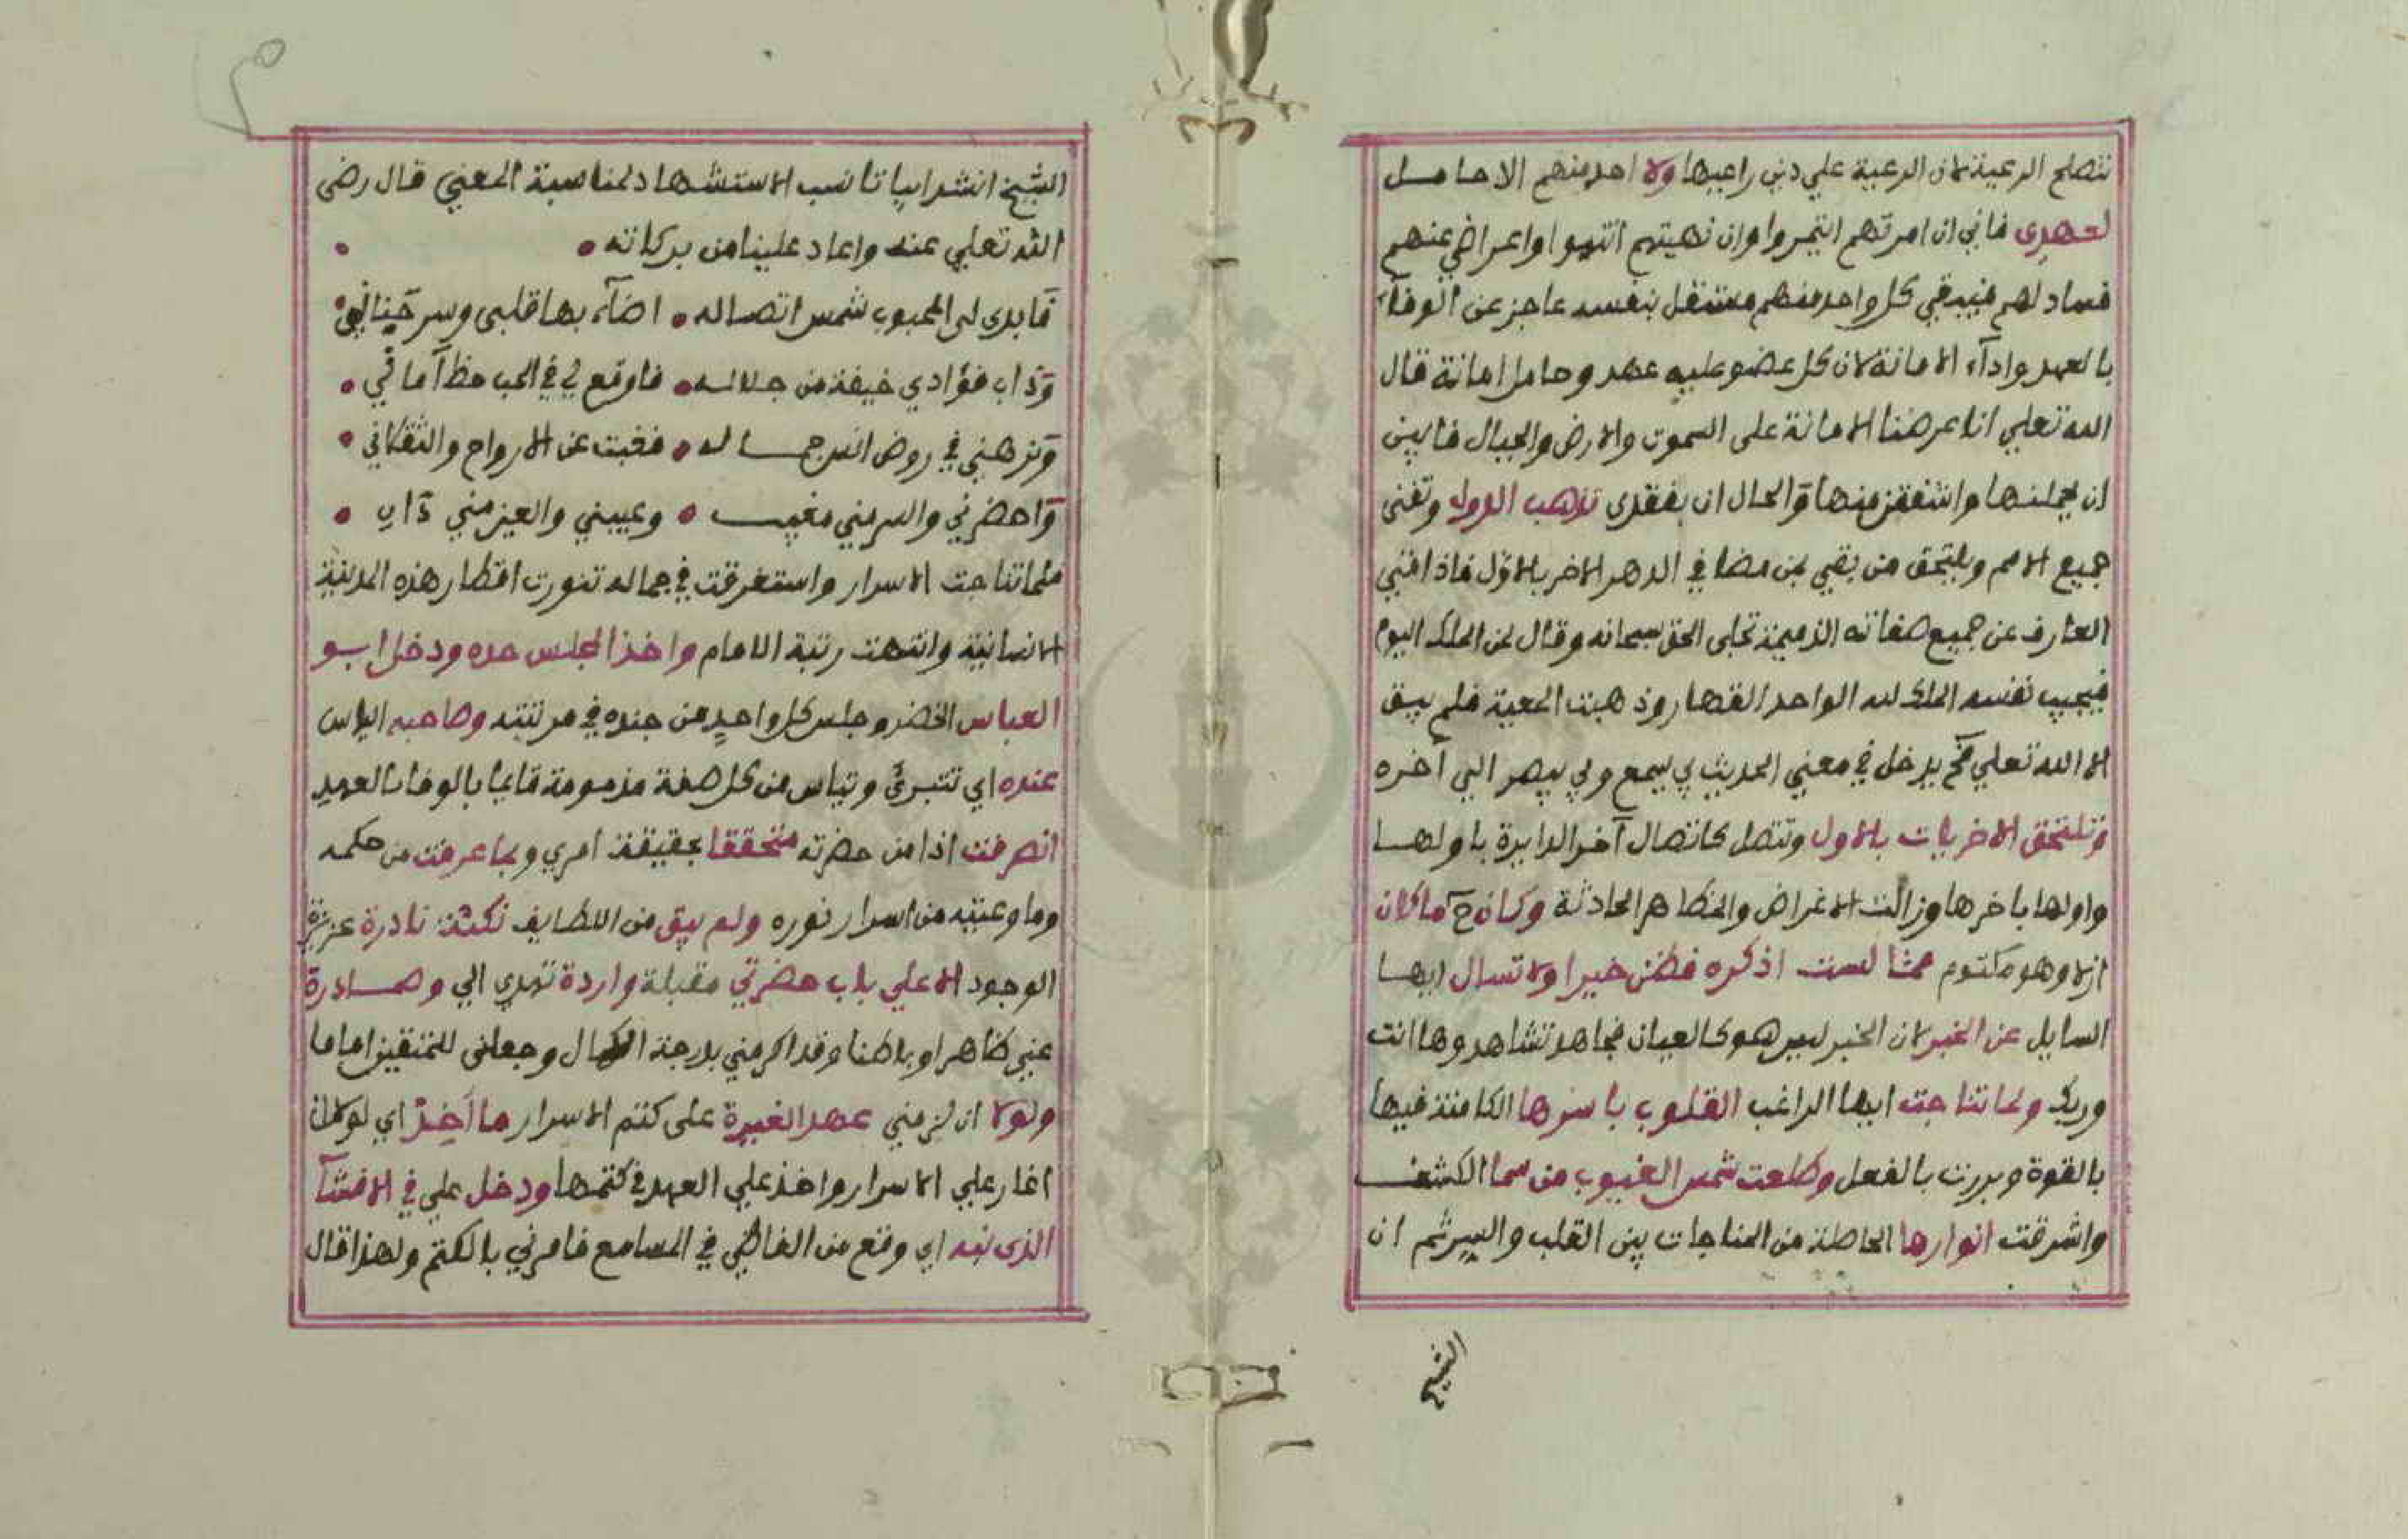 تنصلح الرعية لان الرعية علي دين راعيها ولا احد منهم الا حامل
لعهدى فاني ان امرتهم ايتمروا وان نهيتهم انتهوا واعراضي عنهم
فساد لهم فيبقي كل واحد منهم مشتغل بنفسه عاجز عن الوفآء
بالعهد وادآء الامانة لان كل عضو عليه عهد وحامل امانة قال
الله تعلي انا عرضنا الامانة على السموت والارض والجبال فابين
ان يحملنها واشفقن منها والحال ان بفقدى تذهب الدول وتفنى
جميع الامم ويلتحق من بقي بمن مضا في الدهر الاخر بالاول فاذا فني
العارف عن جميع صفاته الذميمة تجلى الحق سبحانه وقال لمن الملك اليوم
فيجيب نفسه الملك لله الواحد القهار وذهبت المعية فلم يبق
الا الله تعلي فح يدخل في معني الحديث بي يسمع وبي يبصر الي آخره
فتلتحق الاخريات بالاول وتتصل كاتصال آخر الدايرة باولها
واولها باخرها وزالت الاغراض والمظاهر الحادثة وكان ح ما كان
ازلا وهو مكتوم مما لست اذكره فظن خيرا ولا تسال ايها
السايل عن الخبر لان الخبر ليس هو كالعيان فجاهد تشاهد وها انت
وربك ولما تناجت ايها الراغب القلوب باسرها الكامنة فيها
بالقوة وبرزت بالفعل وطلعت شمس الغيوب من سما الكشف
واشرقت انوارها الحاصلة من المناجات بين القلب والسر ثم ان
الشيخ
الشيخ انشد ابياتا نسب الاستشهاد لمناسبة المعني قال رضى
الله تعلي عنه واعاد علينا من بركاته •
فابدى لى المحبوب شمس اتصاله • اضآء بها قلبى وسر جناني •
وذاب فؤادي خيفة من جلاله • فاوقع لي في الحب حظ اماني •
ونزهني في روض انس جماله • فغبت عن الارواح والثقلاني •
واحضرني والسر مني مغيب • وغيبني والعين مني دان •
فلما تناجت الاسرار واستغرقت في جماله تنورت اقطار هذه المدينة
الانسانية وانتهت رتبة الامام واخذ المجلس حده ودخل ابو
العباس الخضر وجلس كل واحد من جنده في مرتبته وصاحبه الياس
عنده اي تتبرئ وتياس من كل صفة مذمومة قايما بالوفا بالعهد
انصرفت اذا من حضرته متحققا بحقيقة امري وبما عرفت من حكمه
وما وعيته من اسرار نوره ولم يبق من اللطايف نكتة نادرة عزيزة
الوجود الا علي باب حضرتي مقبلة واردة تهدي الي وصادرة
عني ظاهرا وباطنا وقد اكرمني بدرجة الكمال وجعلنى للمتقين اماما
ولولا ان لزمني عهد الغيرة على كتم الاسرار ما اخذ اي لولا ان
اغار علي الاسرار واخذ علي العهد في كتمها ودخل علي في الافشآ
الذى نبه اي وقع من الفاظي في المسامع فامرني بالكتم ولهذا قال